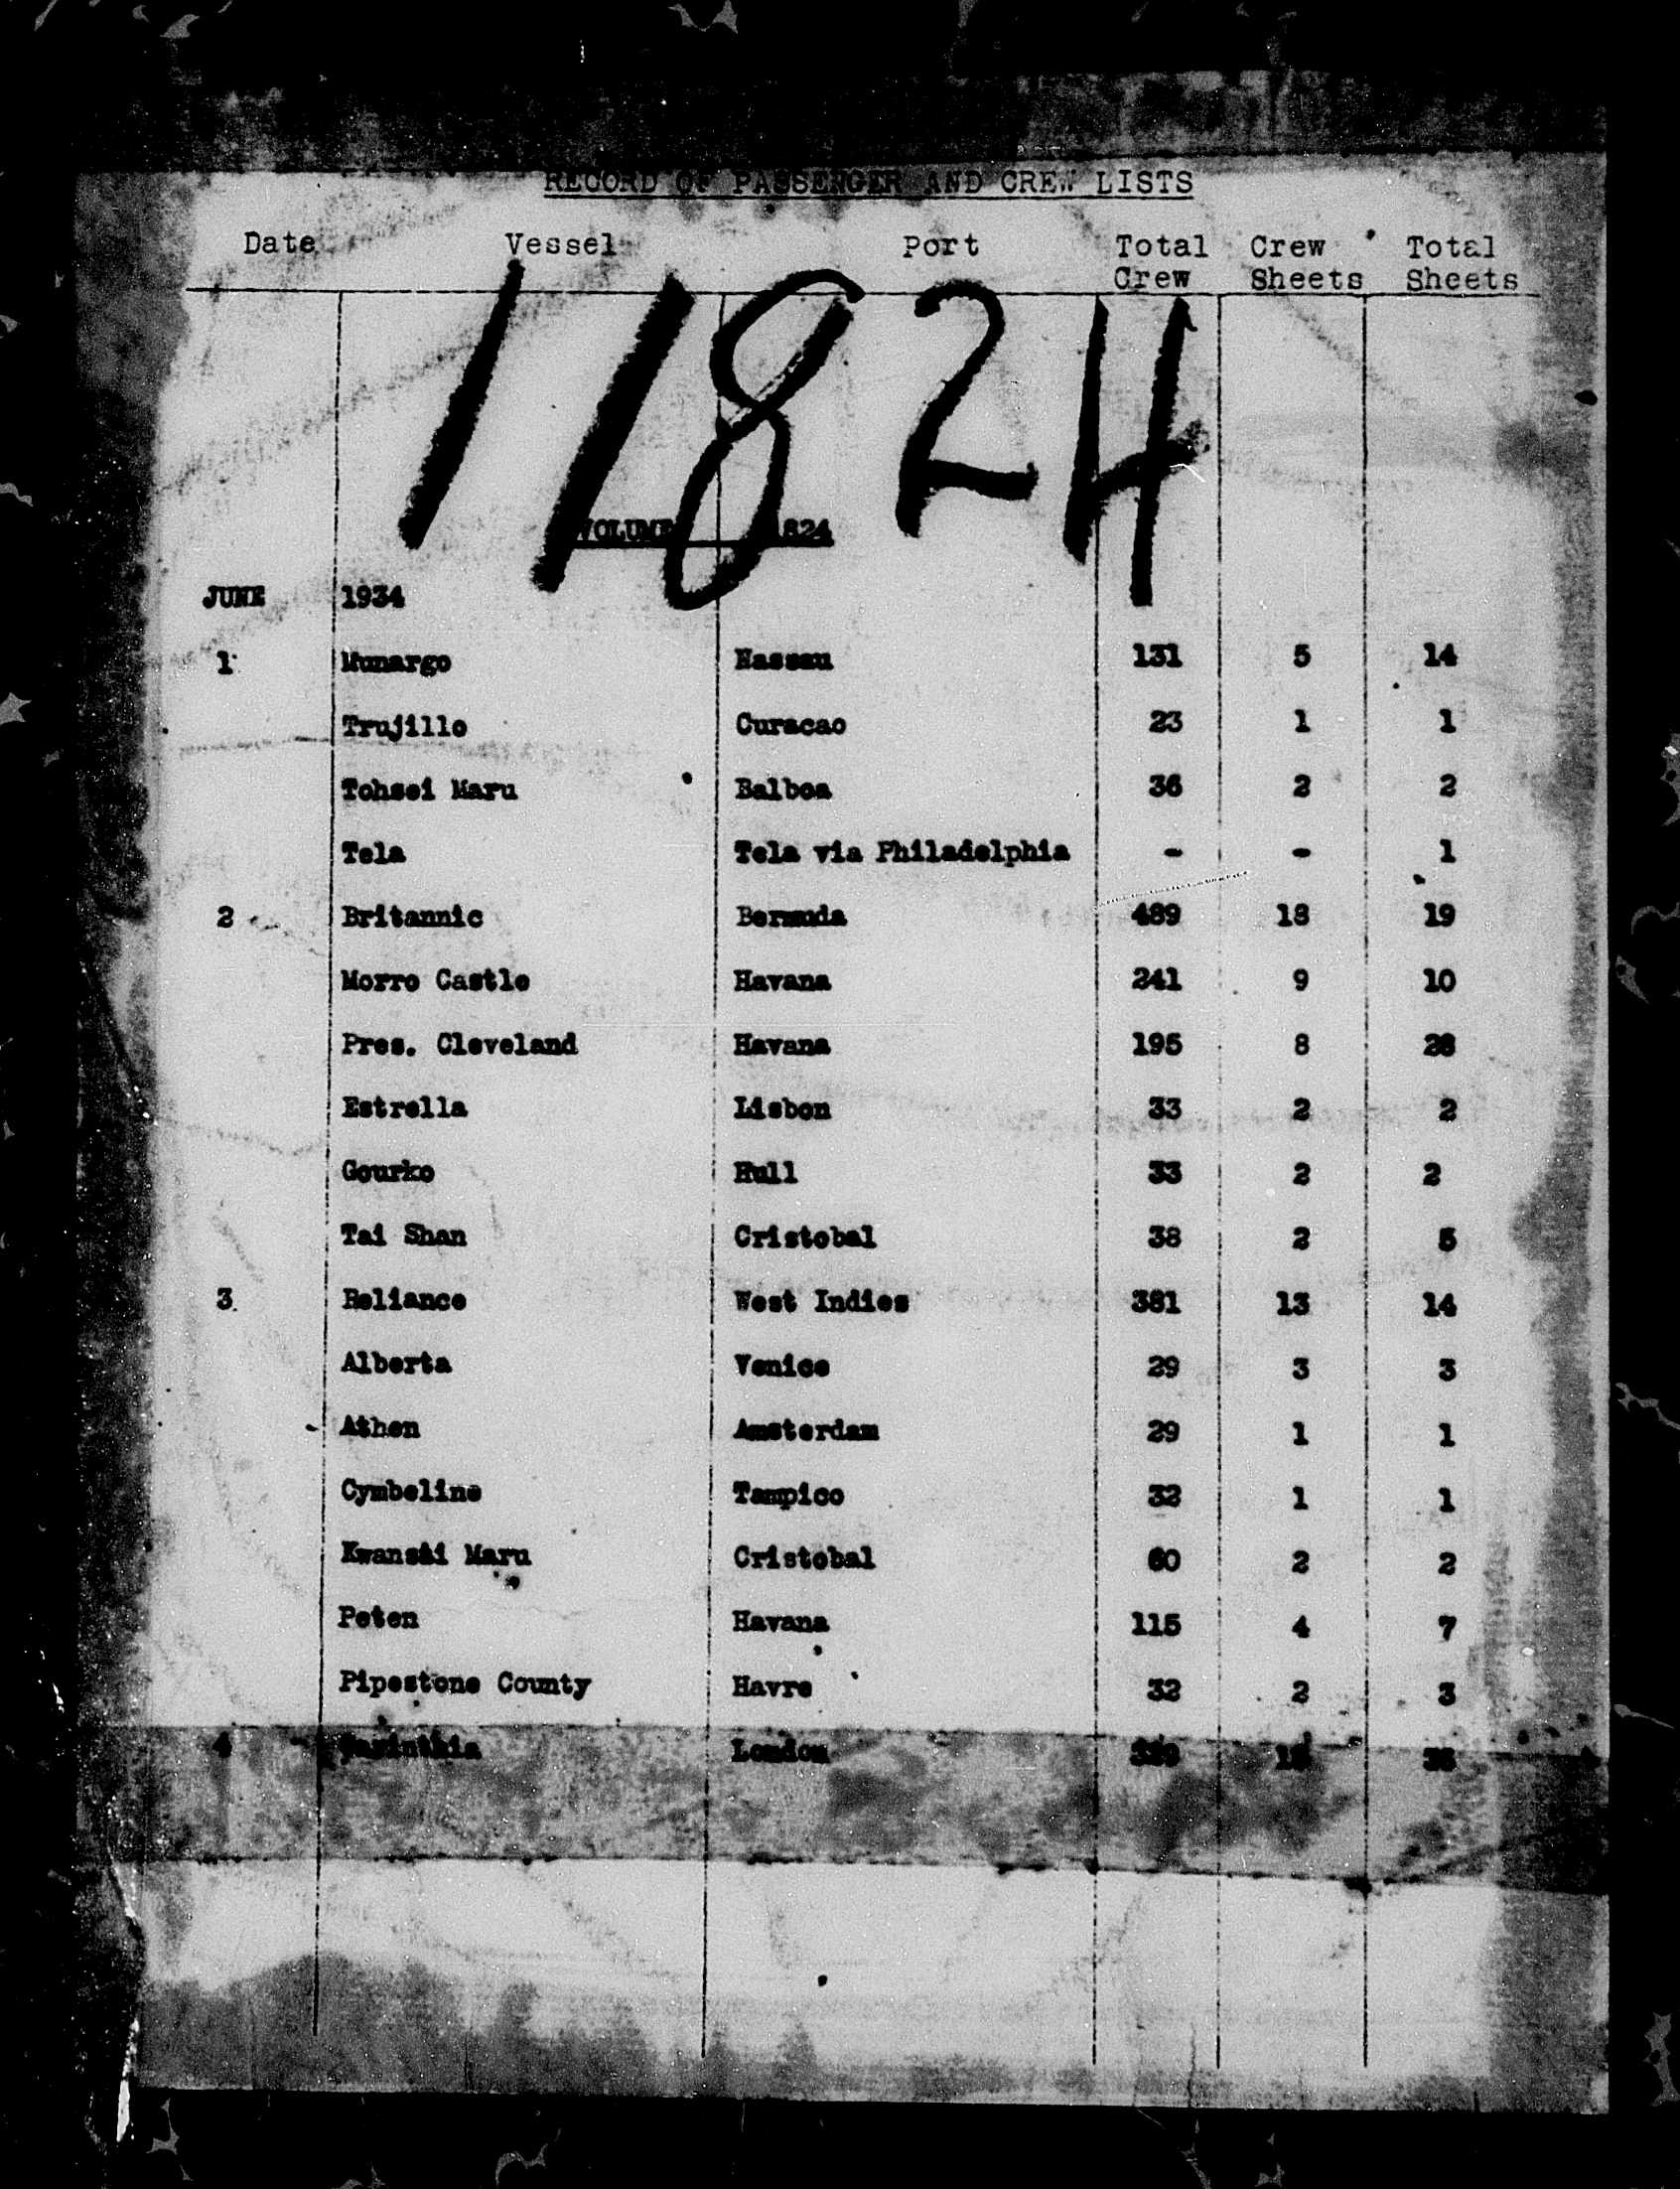 RECORD OF PASSENGER AND CREW LISTS
Date Vessel Port Total Crew Total
Crew Sheets Sheets
11824
VOLUME 824
JUNE 1934
1 Munargo Nassau 131 5 14
Trujillo Curacao 23 1 1
Tohsei Maru Balboa 36 2 2
Tela Tela via Philadelphia - - 1
2 Britannic Bermuda 489 18 19
Morro Castle Havana 241 9 10
Pres. Cleveland Havana 195 8 28
Estrella Lisbon 33 2 2
Gourko Hull 33 2 2
Tai Shan Cristobal 38 2 5
3 Reliance West Indies 381 13 14
Alberta Venice 29 3 3
Athen Amsterdam 29 1 1
Cymbeline Tampico 32 1 1
Kwansai Maru Cristobal 60 2 2
Peten Havana 115 4 7
Pipestone County Havre 32 2 3
4 London